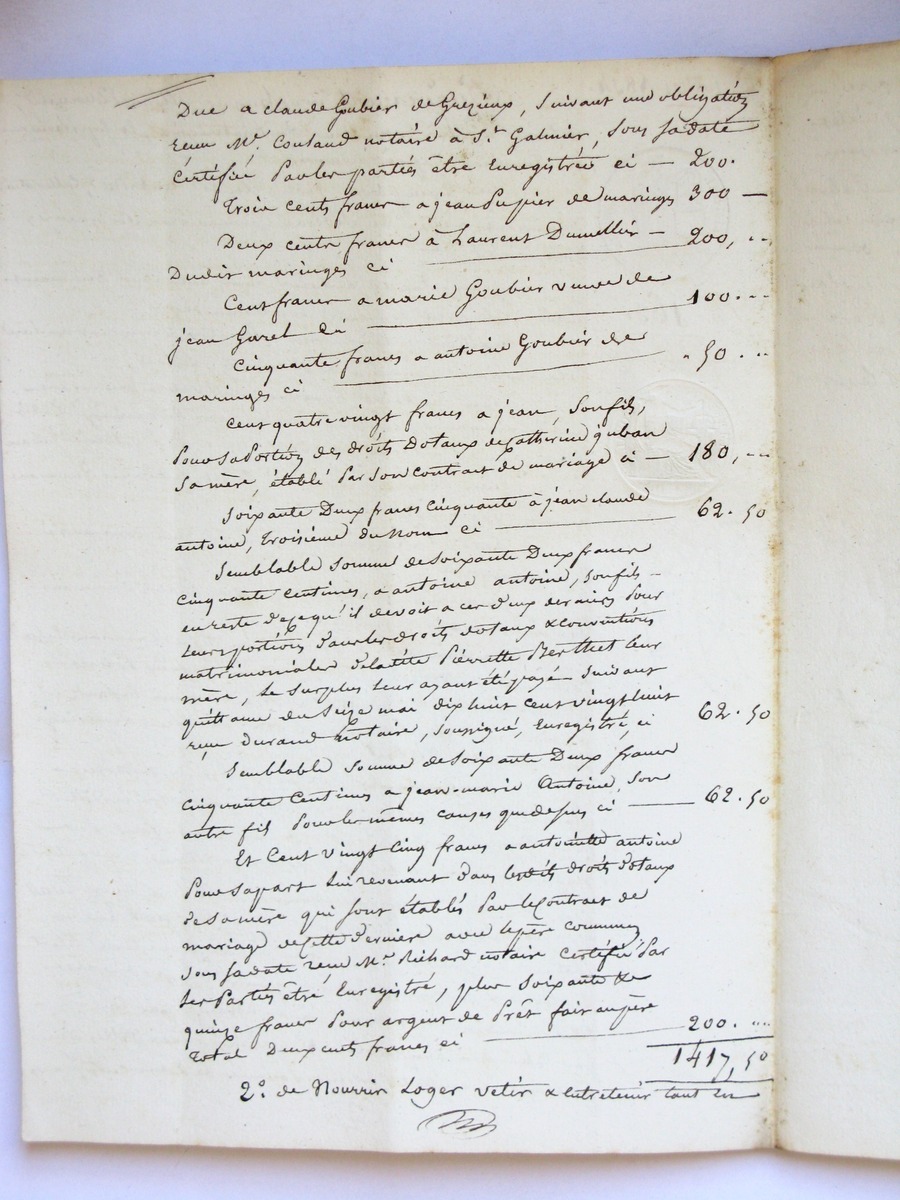 Due a claude Goubier de Grezieux, Suivant une obligation
recue Me. Coutaud notaire à St. Galmier, Sous Sa date
certifié Par les parties être Enregistrée ci — 200.
Trois cents francs a jean Pupier de maringes 300 —
Deux cents francs à Laurent Dumellier —
Dudit maringes ci 200, ..
Cent francs a marie Goubier veuve de
jean Garel ci 100. ..
Cinquante francs a antoine Goubier de
maringes ci . 50 . ..
Cent quatre vingt francs a jean, Son fils,
Pour Sa Portion des droits Dotaux de Catherine juban
Sa mère, établé Par Son contract de mariage ci — 180, ..
Soixante Deux francs Cinquante à jean claude
antoine, troisième du Nom ci 62. 50
Semblable Somme de Soixante Deux francs
Cinquante centimes, a antoine antoine, Son fils —
en reste de ce qu'il devoit a ces deux derniers Pour
leurs portions dans les droits dotaux & conventions
matrimoniales de la dite Pierrette Berthet leur
mère, le Surplus leur ayant été payé Suivant
quittance du Seize mai dix huit cent vingt huit
recue Durand Notaire, Soussigné, Enregistré, ci 62. 50
Semblable Somme de Soixante Deux francs
Cinquante Centimes a jean-marie Antoine, Son
autre fils Pour les mêmes causes que dessus ci — 62. 50
Et Cent vingt Cinq francs a antoinette antoine
Pour Sa part lui revenant dans lesdits droits dotaux
de Sa mère qui Sont établés Par le Contract de
mariage de cette dernière avec le père commun,
Sous Sa date recue Me. Richard notaire Certifié Par
les Parties être Enregistré, plus Soixante &
quinze francs Pour argent de Prêt fait au père
total Deux cents francs ci 200. ..
1417, 50
2°. de Nourrir Loger vetir & entretenir tant en